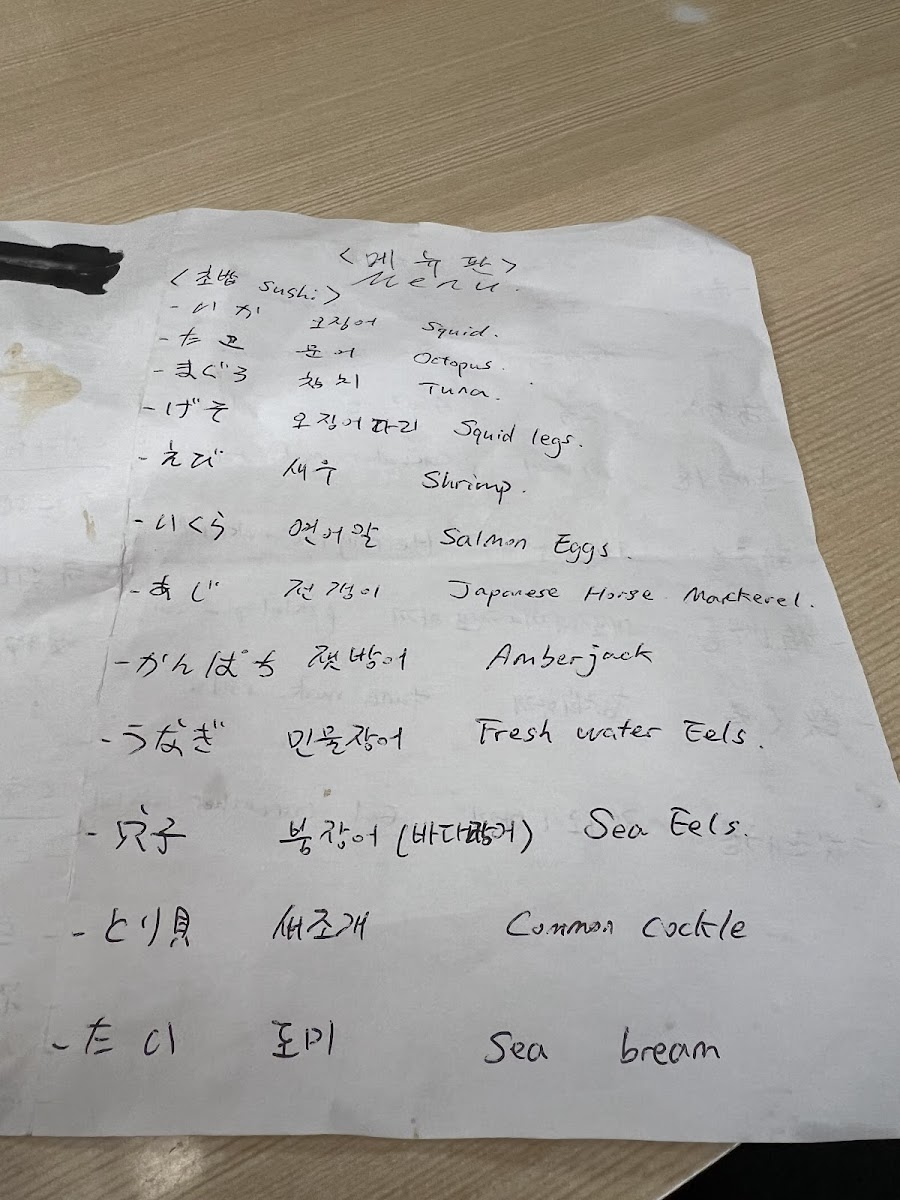 <메뉴판>
Menu.
<초밥 Sushi>
- いか 오징어 Squid.
- たこ 문어 Octopus.
- まぐろ 참치 Tuna.
- げそ 오징어다리 Squid legs.
- えび 새우 Shrimp.
- いくら 연어알 Salmon Eggs.
- あじ 전갱이 Japanese Horse Mackerel.
- かんぱち 잿방어 Amberjack
- うなぎ 민물장어 Fresh water Eels.
- 穴子 붕장어 (바다장어) Sea Eels.
- とり貝 새조개 Common cockle
- たい 도미 Sea bream